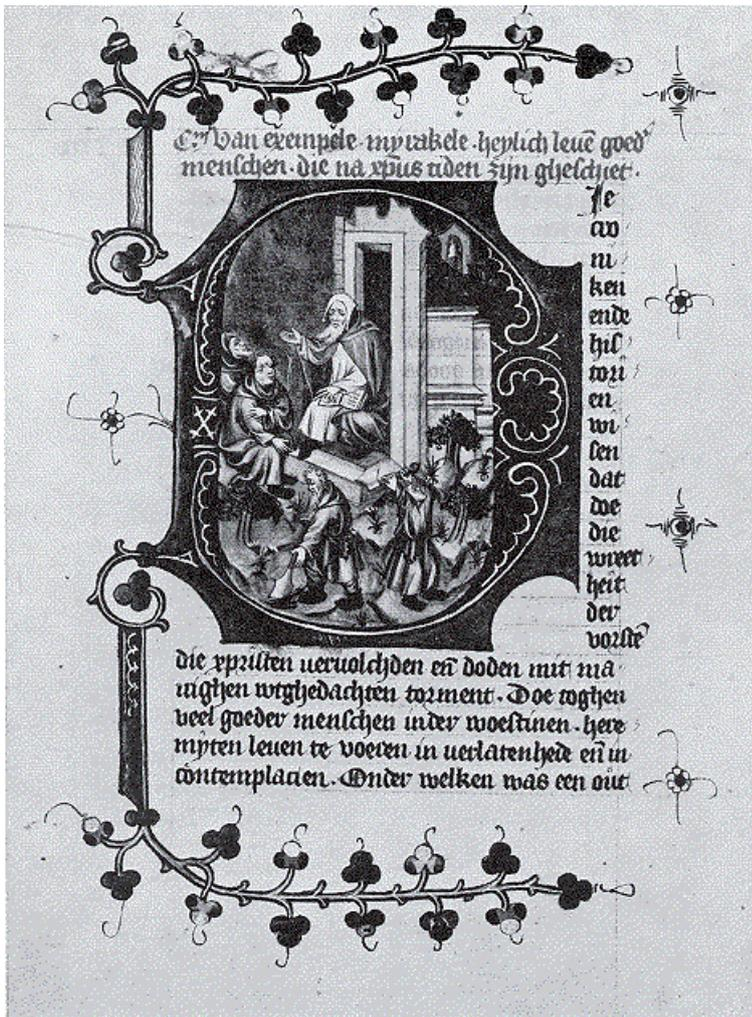 Van exempele · myrakele · heylich leuē goedʼ
menschen · die na xp̄us tiden zijn ghesciet ·
Ie
cro
ni
ken
ende
his
tori
en
wi
sen
dat
doe
die
wreet
heit
der
vorstē
die xpristen veruolchden en̄ doden mit ma
nighen wtghedachten torment · Doe toghen
veel goeder menschen inder woestinen · here
myten leuen te voeren in verlatenhede en̄ in
contemplacien · Onder welken was een out